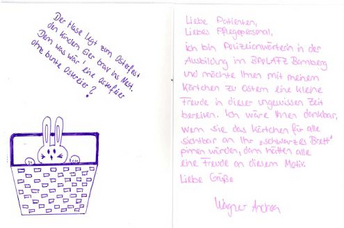 Der Hase legt vom Osterfest
den Kindern Eier brav ins Nest.
Denn was wär' eine
ohne bunte Ostereier?
Liebe Patienten,
Liebes Pflegepersonal,
Ich bin Polizeianwärterin in der
Ausbildung im BPOLAFZ Bamberg
und möchte Ihnen mit meinem
Kärtchen zu Ostern eine kleine
Freude in dieser ungewissen Zeit
bereiten. Ich wäre Ihnen dankbar,
wenn sie das Kärtchen für alle
sichtbar an Ihr "schwarzes Brett"
pinnen würden, dann hätten alle
eine Freude an diesem Motiv.
Liebe Grüße